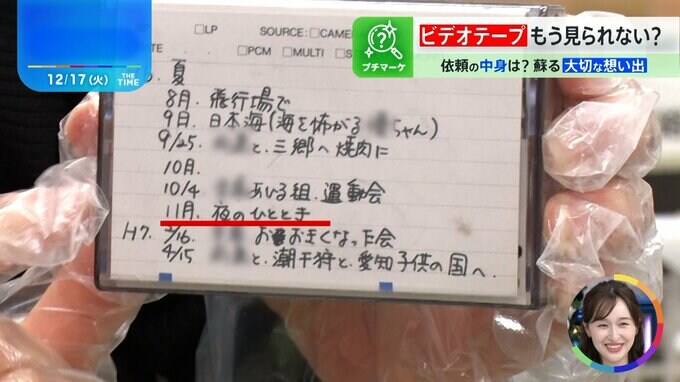 12/17(火) THE TIME,
プチマーケ
ビデオテープ もう見られない?
依頼の中身は? 蘇る 大切な想い出
□LP SOURCE: □CAME
□PCM □MULTI □S
夏
8月. 飛行場で
9月. 日本海(海を怖がる ちゃん)
9/25. と、三郷へ焼肉に
10月.
10/4 あひる組. 運動会
11月. 夜のひととき
H7. 2/16. お おきくなった会
4/15 と、潮干狩と、愛知子供の国へ.